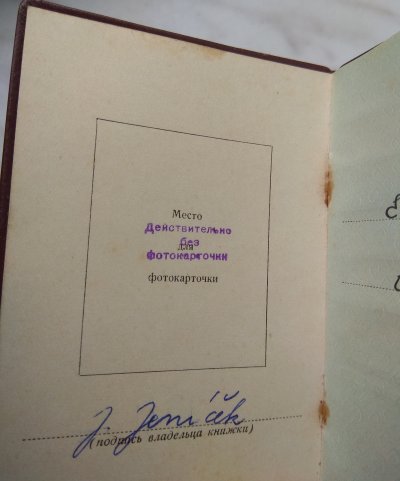 Место
Действительно
без
для
фотокарточки
фотокарточки
J. Jeníček
(подпись владельца книжки)